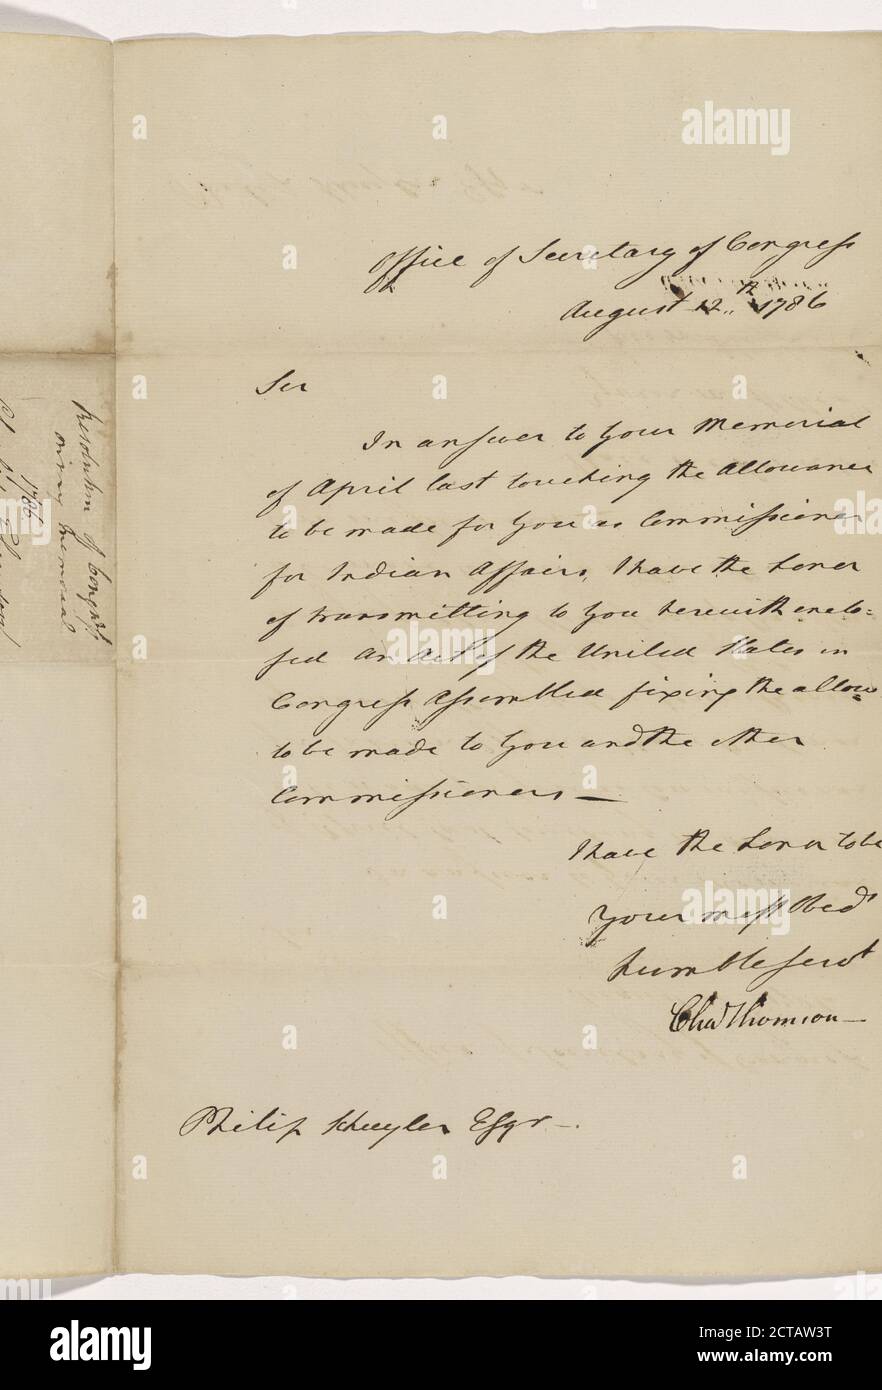 Office of Secretary of Congress
August 12th 1786
Sir
In answer to your Memorial
of April last touching the Allowance
to be made for you as Commissioner
for Indian Affairs, I have the honor
of transmitting to you herewith enclo=
sed an Act of the United States in
Congress Assembled fixing the allow=
to be made to you and the other
Commissioners —
I have the honor to be
Your most Obedt
humble servt
Chas Thomson —
Philip Schuyler Esqr —.
Resolution of Congress
on my Memorial
1786
alamy
Image ID: 2CTAW3T
www.alamy.com